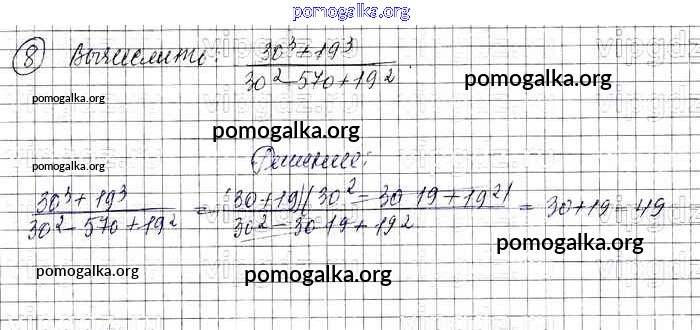 pomogalka.org
8 Вычислить: 30³+19³ / 30²-570+19².
pomogalka.org
pomogalka.org
pomogalka.org
pomogalka.org
Решение:
30³+19³ / 30²-570+19² = (30+19)(30²-30 19+19²) / 30²-30 19+19² = 30+19=49
pomogalka.org
pomogalka.org
pomogalka.org